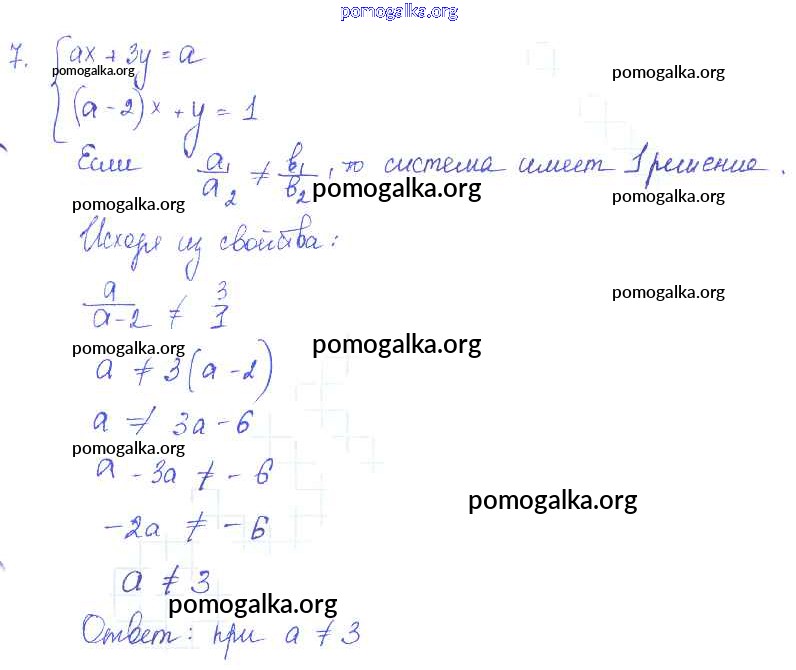 pomogalka.org
7. { ax + 3y = a
pomogalka.org pomogalka.org
(a - 2)x + y = 1
Если a₁/a₂ ≠ b₁/b₂, то система имеет 1 решение.
pomogalka.org pomogalka.org pomogalka.org
Исходя из свойства:
a/(a-2) ≠ 3/1
pomogalka.org
pomogalka.org pomogalka.org
a ≠ 3(a - 2)
a ≠ 3a - 6
pomogalka.org
a - 3a ≠ - 6
pomogalka.org
-2a ≠ - 6
a ≠ 3
pomogalka.org
Ответ: при a ≠ 3